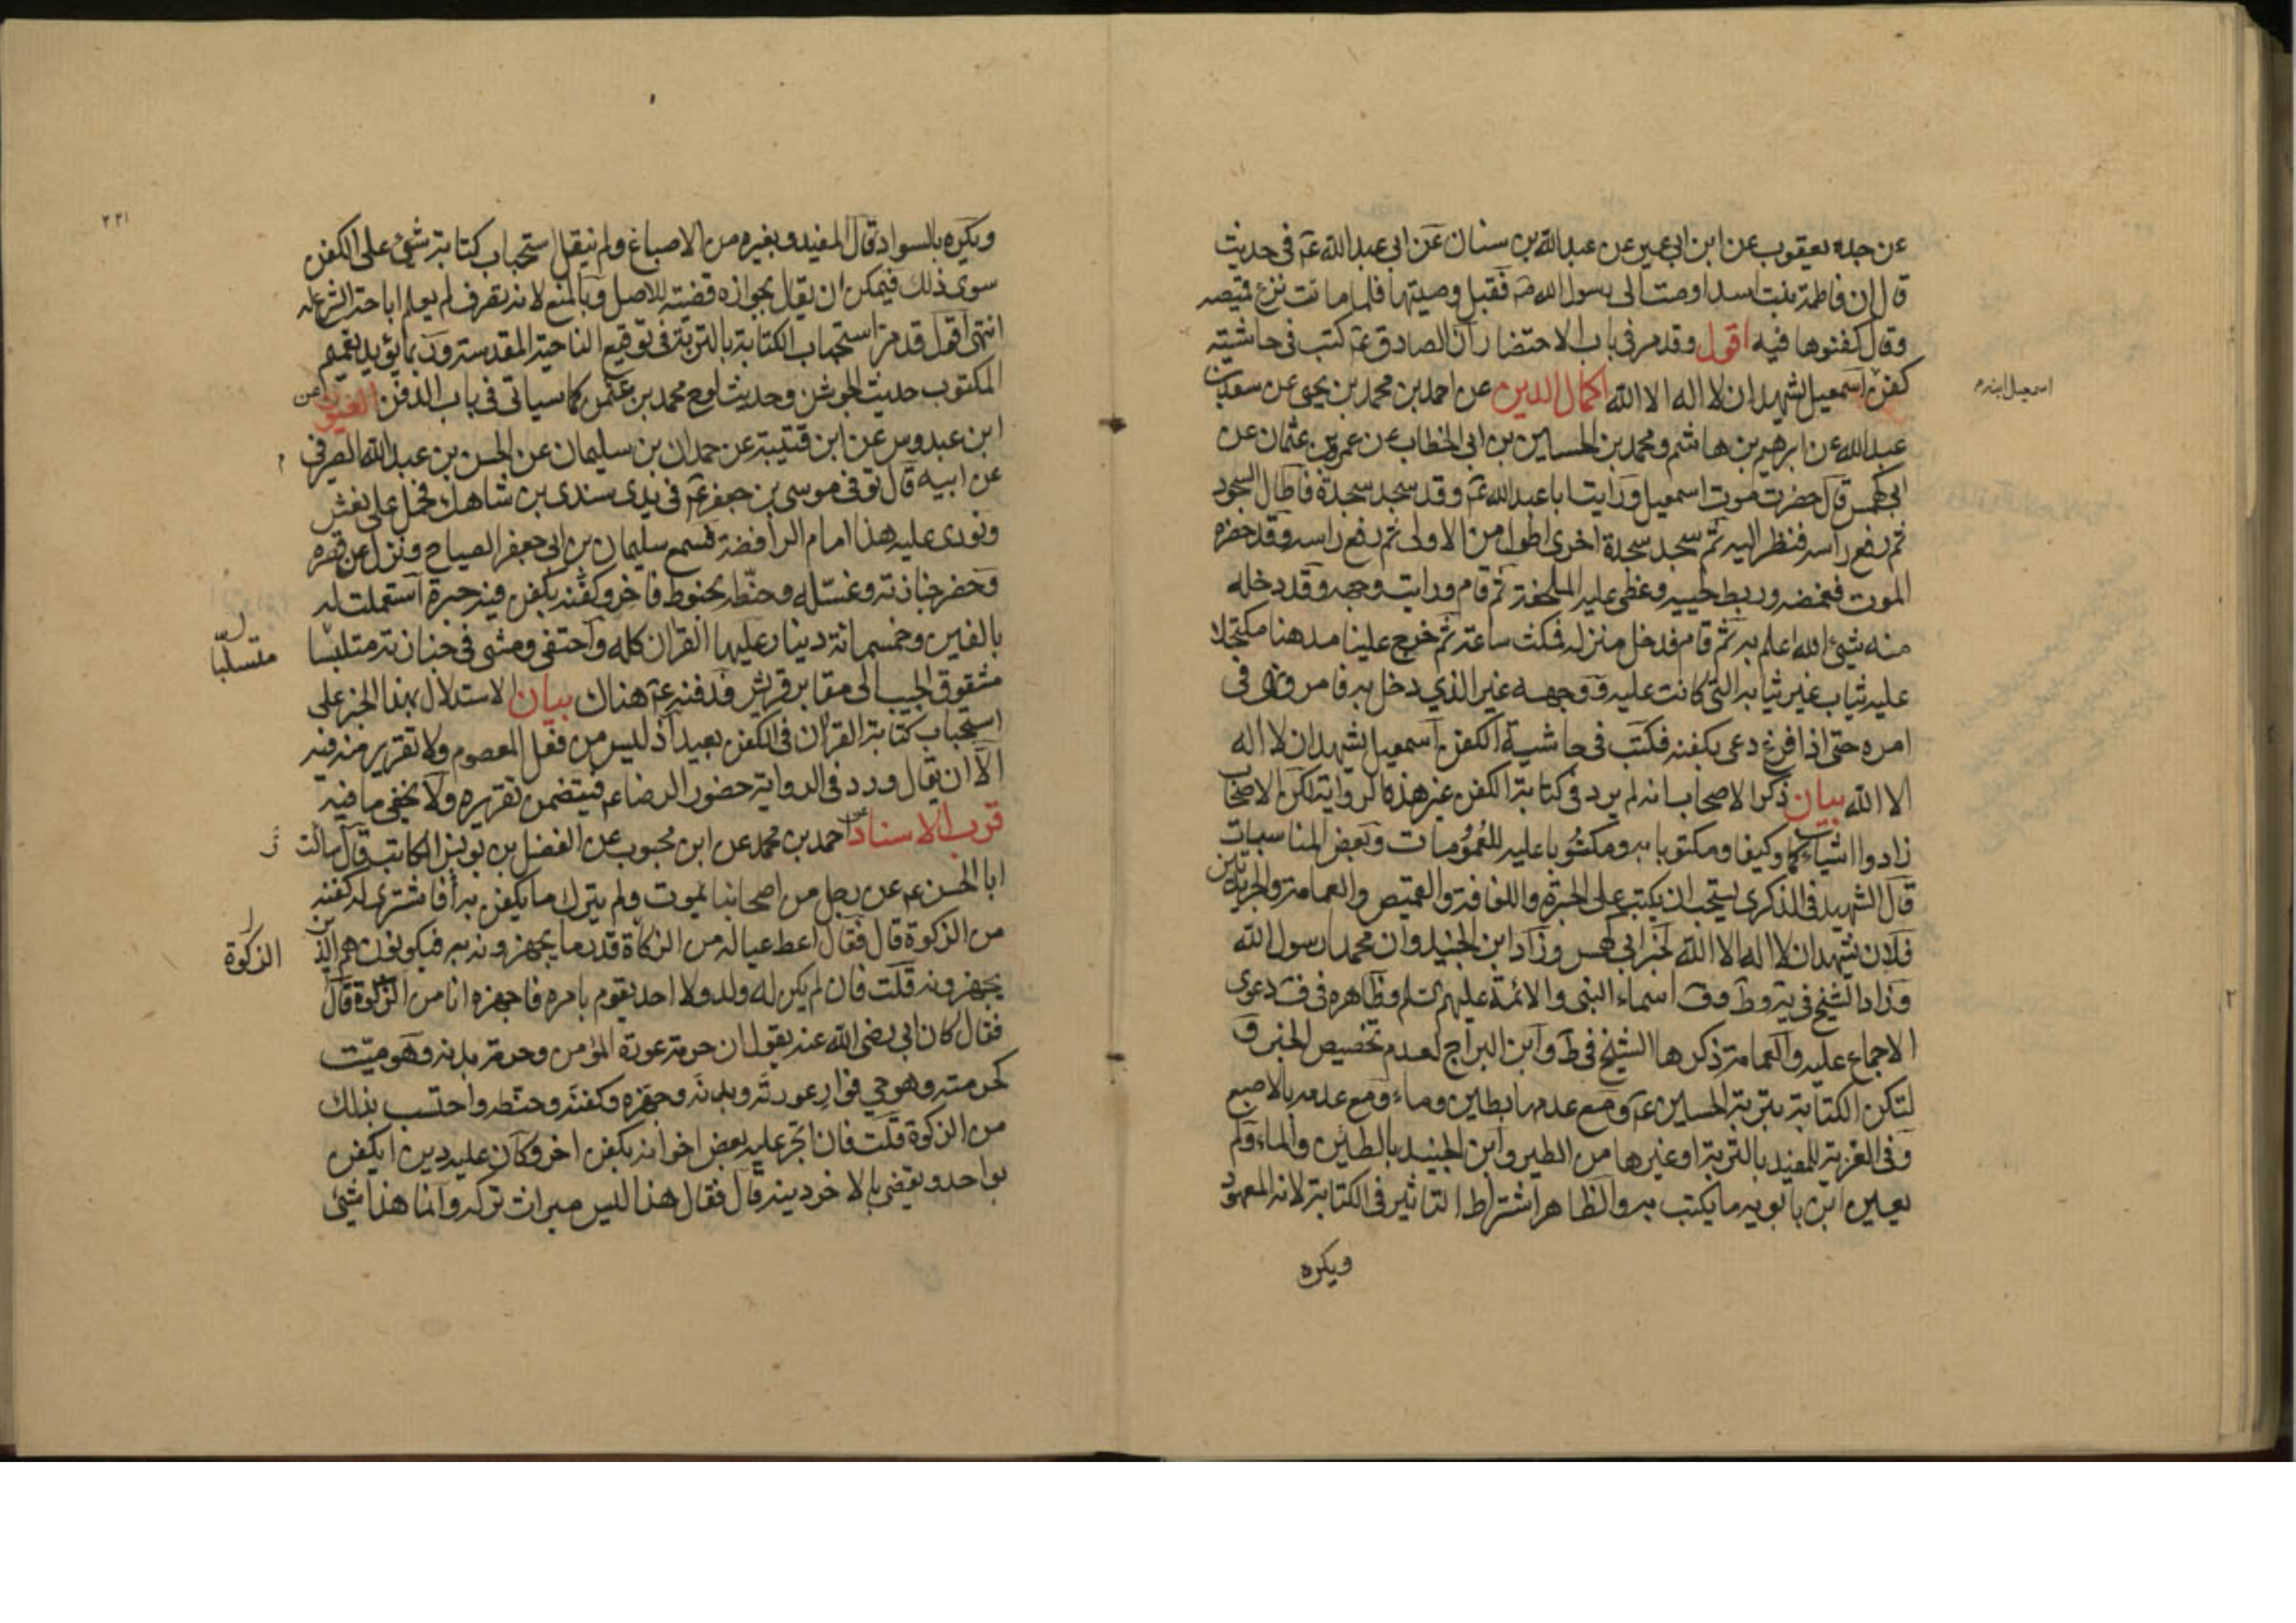 عن جده يعقوب عن ابن ابي عمير عن عبد الله بن سنان عن ابي عبد الله عم في حديث
قال ان فاطمة بنت اسد اوصت الى رسول الله ص فقبل وصيتها فلما ماتت نزع قميصه
وقال كفنوها فيه اقول وقد مر في باب الاحتضار ان الصادق عم كتب في حاشية
كفن اسمعيل يشهد ان لا اله الا الله اكمال الدين عن احمد بن محمد بن يحيى عن سعد بن
اسمعيل ابنه
عبد الله عن ابرهيم بن هاشم ومحمد بن الحسين بن ابي الخطاب عن عمرو بن عثمان عن
ابي كهمس قال حضرت موت اسمعيل ورايت ابا عبد الله عم وقد سجد سجدة فاطال السجود
ثم رفع راسه فنظر اليه ثم سجد سجدة اخرى اطول من الاولى ثم رفع راسه وقد حضره
الموت فغمضه وربط لحييه وغطى عليه الملحفة ثم قام ورايت وجهه وقد دخله
منه شئ الله اعلم به ثم قام فدخل منزله فمكث ساعة ثم خرج علينا مدهنا مكتحلا
عليه ثياب غير ثيابه التي كانت عليه ووجهه غير الذي دخل به فامر ونهى في
امره حتى اذا فرغ دعى بكفنه فكتب في حاشية الكفن اسمعيل يشهد ان لا اله
الا الله بيان ذكر الاصحاب انه لم يرد في كتابة الكفن غير هذه الرواية لكن الاصحاب
زادوا اشياء كما وكيفا ومكتوبا به ومكتوبا عليه للعمومات وبعض المناسبات
قال الشهيد في الذكرى يستحب ان يكتب على الحبرة واللفافة والقميص والعمامة والجريدتين
فلان يشهد ان لا اله الا الله لخبر ابي كهمس وزاد ابن الجنيد وان محمدا رسول الله
وزاد الشيخ في يه وط وف اسماء النبي والائمة عليهم السلم وظاهره في ف دعوى
الاجماع عليه والعمامة ذكرها الشيخ في ط وابن البراج لعدم تخصيص الخبر و
لتكن الكتابة بتربة الحسين عم ومع عدمها بطين وماء ومع عدمه بالاصبع
وفي الغرية للمفيد بالتربة او غيرها من الطين وابن الجنيد بالطين والماء ولم
يعين ابن بابويه ما يكتب به والظاهر اشتراط التاثير في الكتابة لانه المعهود
ويكره
٢٢١
ويكره بالسواد قال المفيد وبغيره من الاصباغ ولم ينقل استحباب كتابة شئ على الكفن
سوى ذلك فيمكن ان يقال بجوازه قضية للاصل وبالمنع لانه تصرف لم يعلم اباحة الشرع له
انتهى اقول قد مر استحباب الكتابة بالتربة في توقيع الناحية المقدسة وربما يؤيد تعميم
المكتوب حديث الجوشن وحديث لوح محمد بن عثمن كما سياتي في باب الدفن العيون عن
ابن عبدوس عن ابن قتيبة عن حمدان بن سليمان عن الحسن بن عبد الله الصرفي
عن ابيه قال توفي موسى بن جعفر عم في يدي سندي بن شاهك فحمل على نعش
ونودي عليه هذا امام الرافضة فسمع سليمان بن ابي جعفر الصياح ونزل عن قصره
وحضر جنازته وغسله وحنطه بحنوط فاخر وكفنه بكفن فيه حبرة استعملت له
بالفين وخمسمائة دينار عليها القران كله واحتفى ومشى في جنازته متلبسا
متسلبا
مشقوق الجيب الى مقابر قريش فدفنه عم هناك بيان الاستدلال بهذا الخبر على
استحباب كتابة القران في الكفن بعيد اذ ليس من فعل المعصوم ولا تقرير منه فيه
الا ان يقال ورد في الرواية حضور الرضا عم فيتضمن تقريره ولا يخفى ما فيه
قرب الاسناد عن احمد بن محمد عن ابن محبوب عن الفضل بن يونس الكاتب قال سالت
ابا الحسن عم عن رجل من اصحابنا يموت ولم يترك ما يكفن به أفاشترى له كفنه
من الزكوة قال فقال اعط عياله من الزكاة قدر ما يجهزونه به فيكونون هم الذين
الزكوة
يجهزونه قلت فان لم يكن له ولد ولا احد يقوم بامره فاجهزه انا من الزكوة قال
فقال كان ابي رضي الله عنه يقول ان حرمة عورة المؤمن وحرمة بدنه وهو ميت
كحرمته وهو حي فوار عورته وبدنه وجهزه وكفنه وحنطه واحتسب بذلك
من الزكوة قلت فان اتجر عليه بعض اخوانه بكفن اخر وكان عليه دين ايكفن
بواحد ويقضى بالاخر دينه قال فقال هذا ليس ميراث تركه وانما هذا شئ